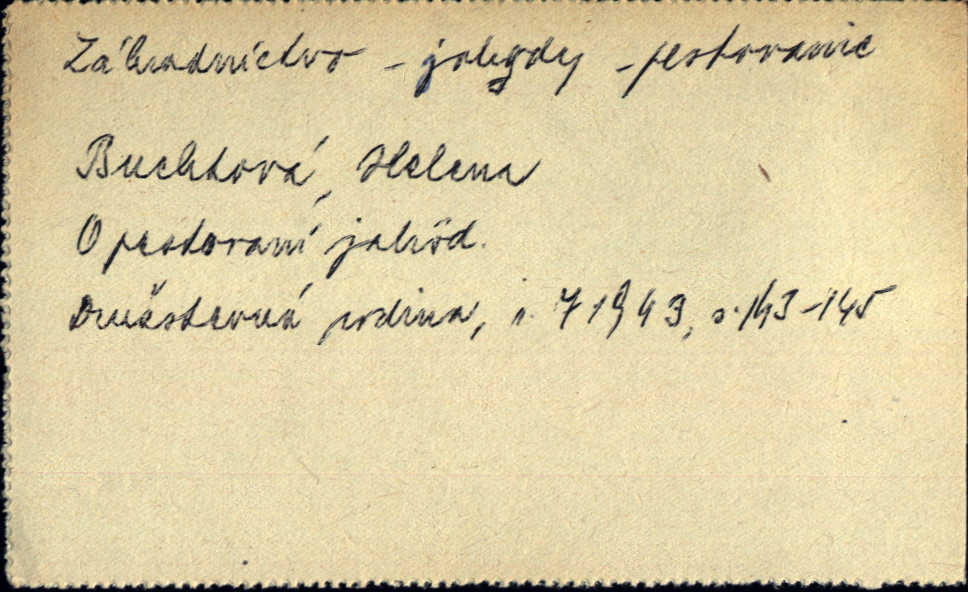 Záhradníctvo - jahody - pestovanie
Buchtová, Helena
O pestovaní jahôd.
Družstevná rodina, r. 7 1943, s. 143-145